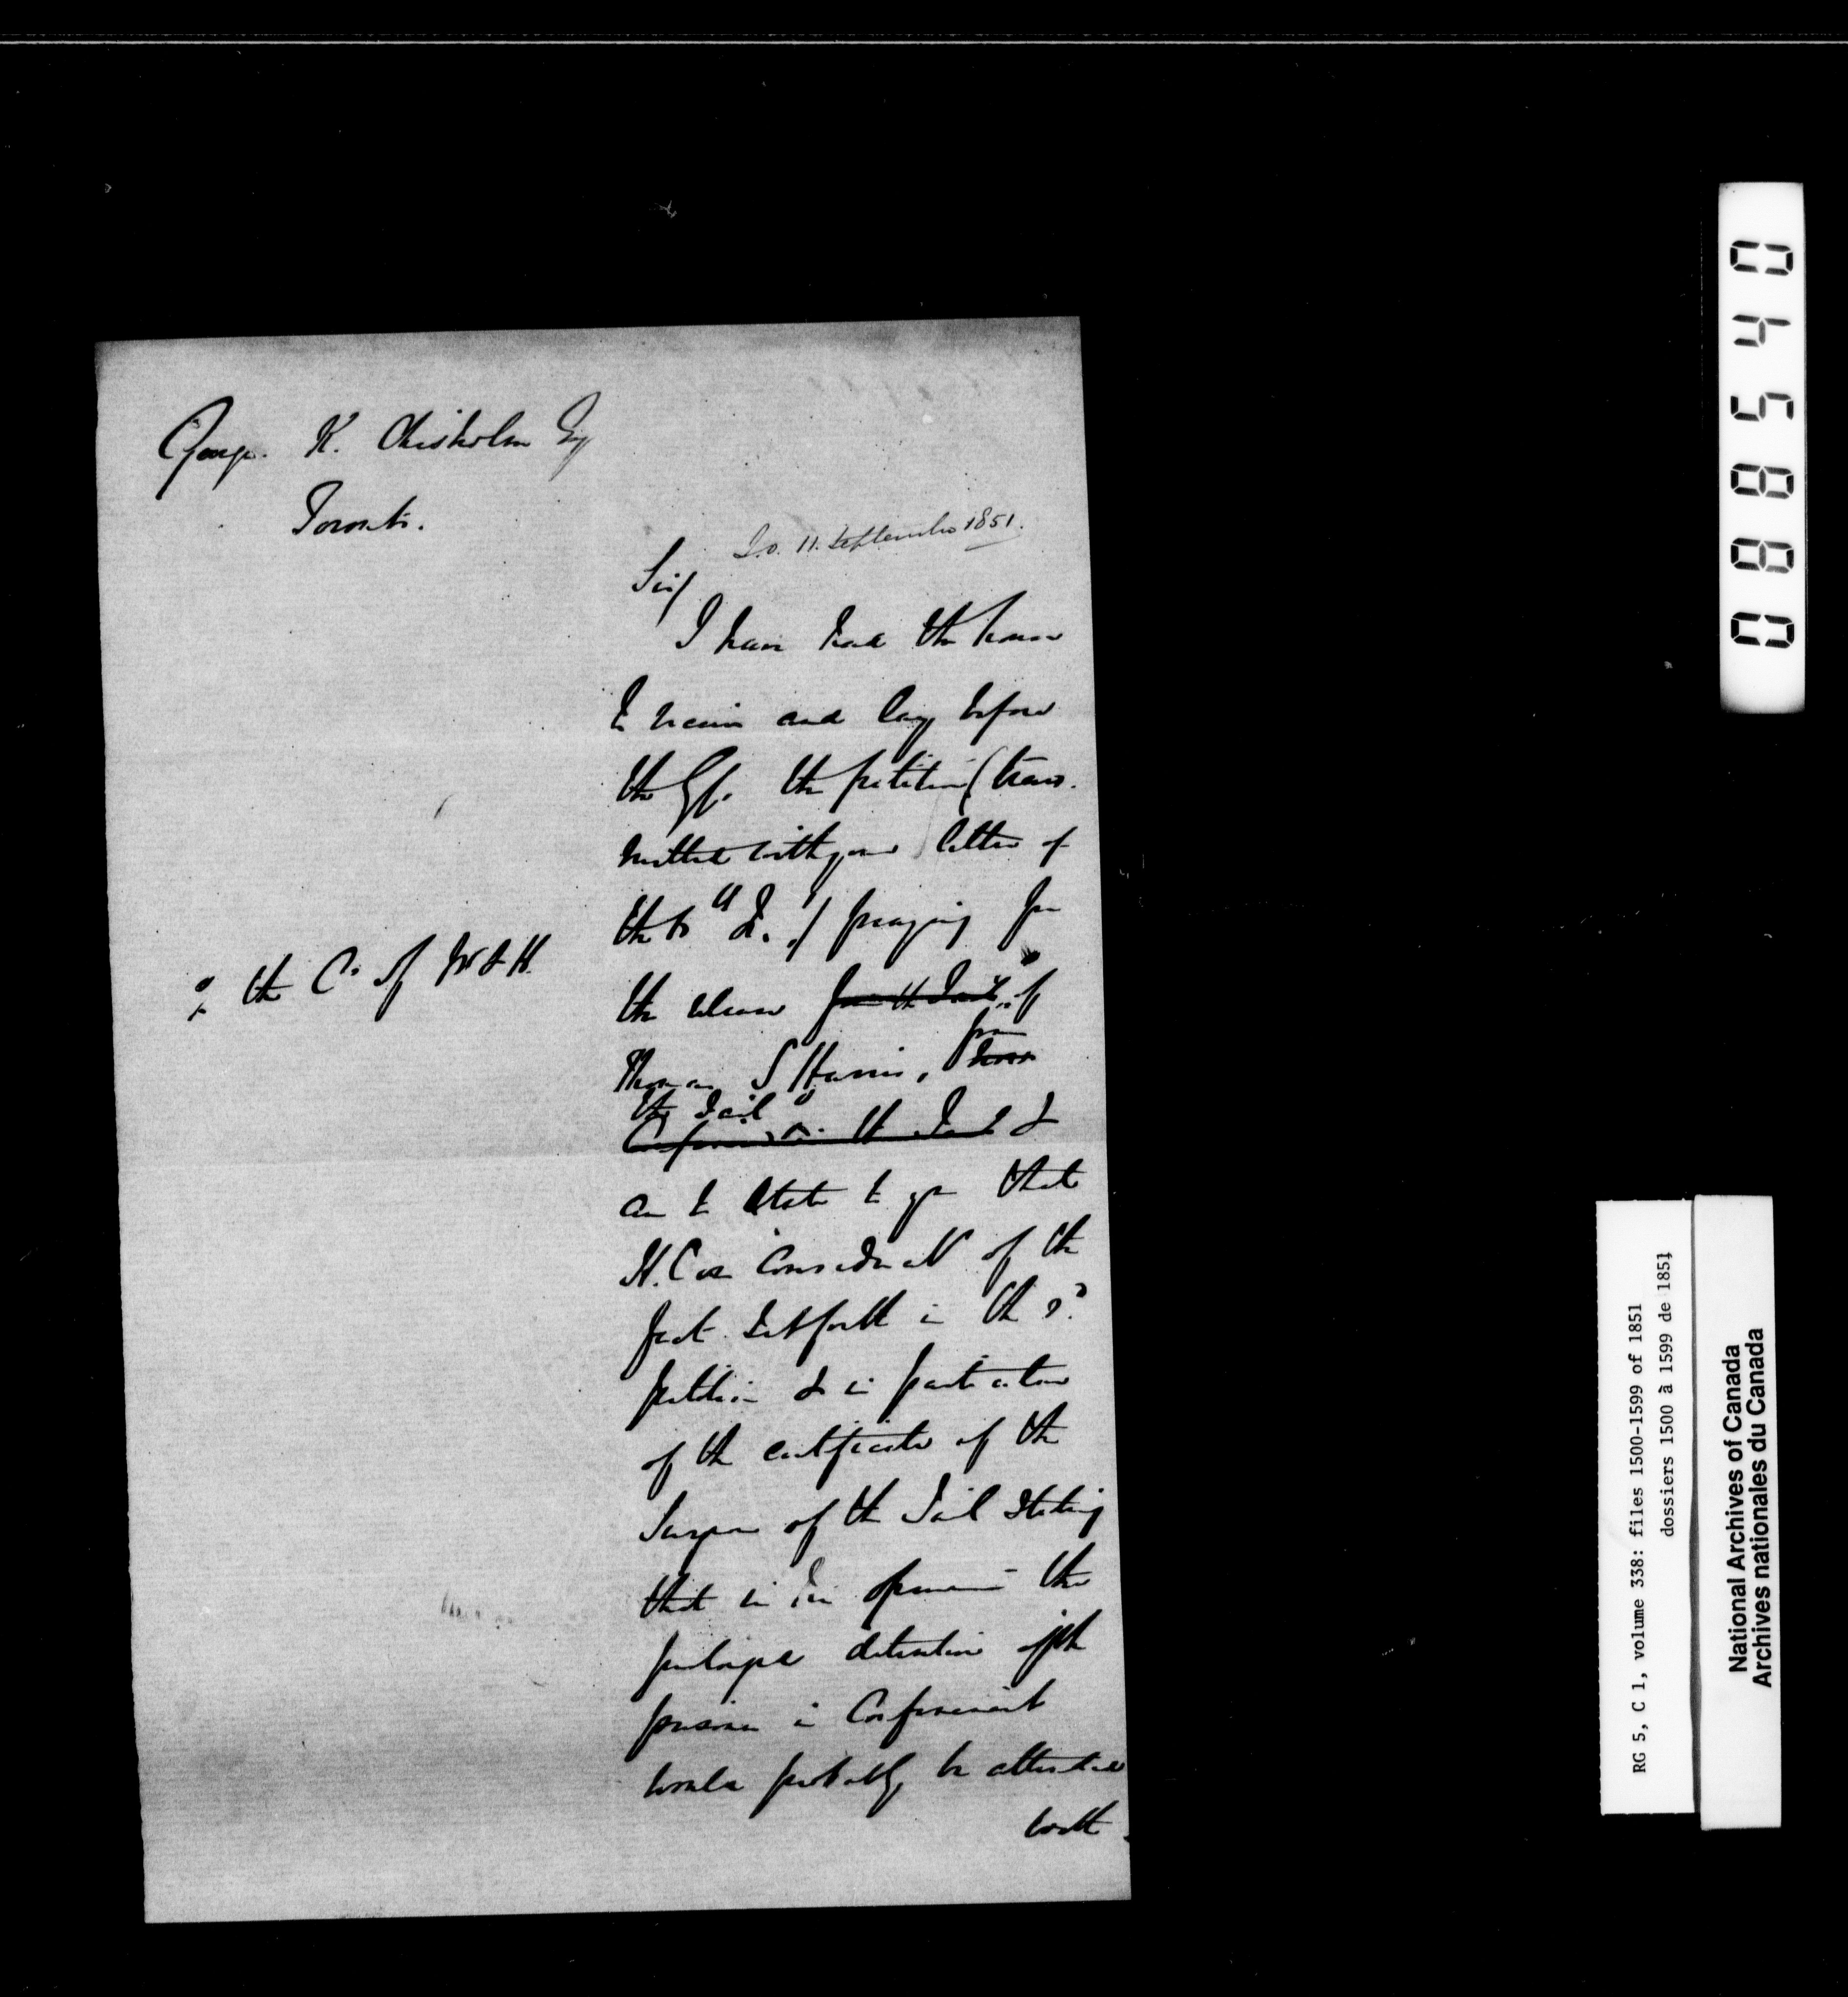 George K. Chisholm Esq
Toronto.
S.O. 11. September 1851.
Sir/
I have had the honor
to receive and lay before
the GG. the petition (trans-
mitted with your letter of
the &c.) praying for
the release from the Gaol of
Thomas S Harris, from
the Gaol
% the Co of W & H.
Confined in the Gaol &
am to state to you that
H. E. on considn of the
facts set forth in the sd
petition & in particular
of the certificate of the
Surgeon of the Gaol stating
that in his opinion the
prolonged detention of the
prisoner in Confinement
would probably be attended
with
088540
RG 5, C 1, volume 338: files 1500-1599 of 1851
dossiers 1500 à 1599 de 1851
National Archives of Canada
Archives nationales du Canada